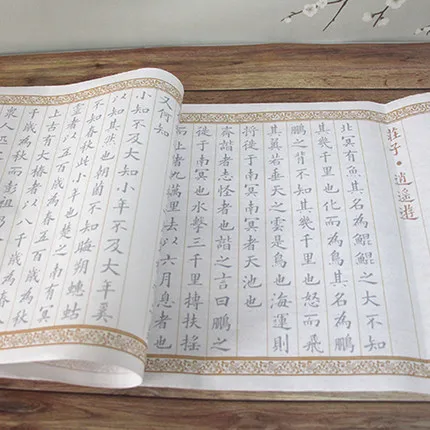 莊子·逍遙遊
北冥有魚其名為鯤鯤之大不知
其幾千里也化而為鳥其名為鵬
鵬之背不知其幾千里也怒而飛
其翼若垂天之雲是鳥也海運則
將徙于南冥南冥者天池也
齊諧者志怪者也諧之言曰鵬之
徙于南冥也水擊三千里摶扶搖
而上者九萬里去以六月息者也
又何知
小知不及大知小年不及大年奚
以知其然也朝菌不知晦朔蟪蛄
不知春秋此小年也楚之南有冥
者以五百歲為春五百歲為秋
上古有大椿者以八千歲為春
千歲為秋而彭祖乃
人匹